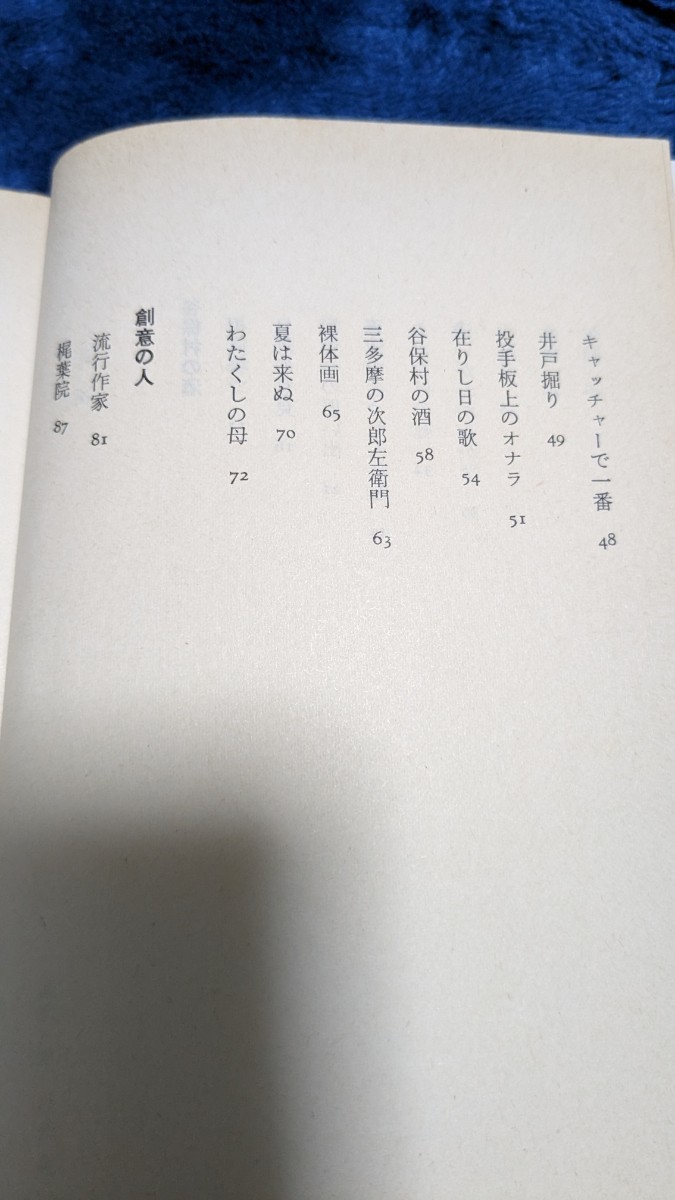 キャッチャーで一番 48
井戸掘り 49
投手板上のオナラ 51
在りし日の歌 54
谷保村の酒 58
三多摩の次郎左衛門 63
裸体画 65
夏は来ぬ 70
わたくしの母 72
創意の人
流行作家 81
梶葉院 87